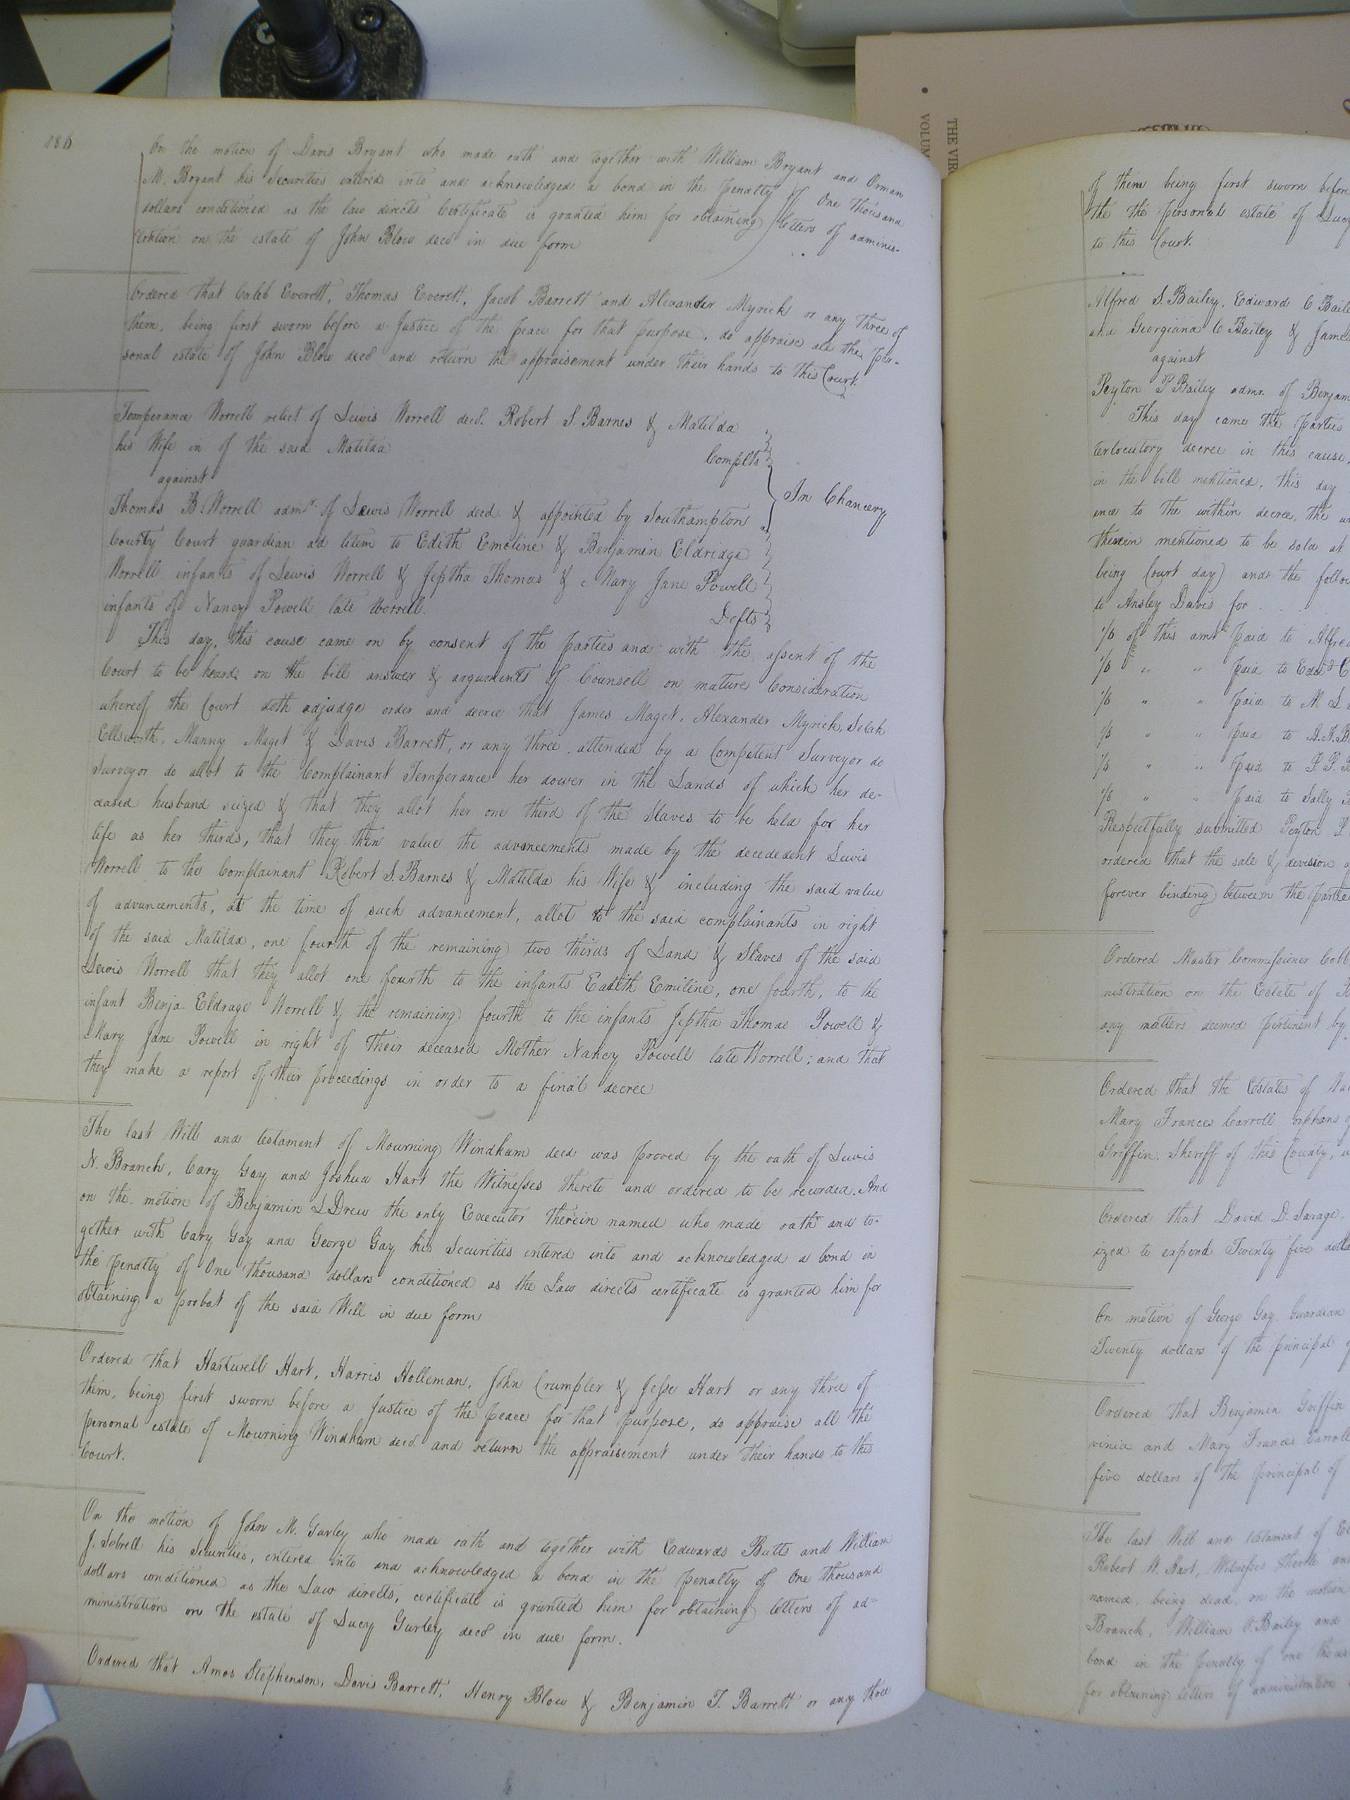 On the motion of Davis Bryant who made oath and together with William Bryant and Orman
M. Bryant his Securities entered into and acknowledged a bond in the penalty of One thousand
dollars conditioned as the law directs Certificate is granted him for obtaining letters of adminis-
tration on the estate of John Blow decd in due form
Ordered that Caleb Everett, Thomas Everett, Jacob Barrett and Alexander Myrick or any three of
them, being first sworn before a Justice of the peace for that purpose, do appraise all the per-
sonal estate of John Blow decd and return the appraisement under their hands to this Court.
Temperance Worrell relict of Lewis Worrell decd. Robert S. Barnes & Matilda
his Wife in of the said Matilda
Complts
against
In Chancery
Thomas B. Worrell admr. of Lewis Worrell decd & appointed by Southampton
County Court guardian ad litem to Edith Emeline & Benjamin Eldridge
Worrell infants of Lewis Worrell & Jeptha Thomas & Mary Jane Powell
infants of Nancy Powell late Worrell.
Defts
This day, this cause came on by consent of the parties and with the assent of the
Court to be heard on the bill answer & arguments of Counsell on mature Consideration
whereof the Court doth adjudge order and decree that James Maget, Alexander Myrick,
Ellsworth, Manny Maget & Davis Barrett, or any three attended by a Competent Surveyor do
Surveyor do allot to the Complainant Temperance her dower in the Lands of which her de-
ceased husband seized & that they allot her one third of the Slaves to be held for her
life as her thirds, that they then value the advancements made by the decedent Lewis
Worrell to the Complainant Robert S. Barnes & Matilda his Wife & including the said value
of advancements, at the time of such advancement, allot to the said complainants in right
of the said Matilda, one fourth of the remaining two thirds of Land & Slaves of the said
Lewis Worrell that they allot one fourth to the infants Emiline, one fourth, to the
infant Benja Eldrage Worrell & the remaining fourth to the infants Jeptha Thomas Powell &
Mary Jane Powell in right of their deceased Mother Nancy Powell late Worrell; and that
they make a report of their proceedings in order to a final decree
The last Will and testament of Mourning Windham decd was proved by the oath of Lewis
N. Branch, Cary Gay and Joshua Hart the Witnesses thereto and ordered to be recorded. And
on the motion of Benjamin L Drew the only Executor therein named who made oath and to-
gether with Cary Gay and George Gay his Securities entered into and acknowledged a bond in
the penalty of One thousand dollars conditioned as the Law directs certificate is granted him for
obtaining a probat of the said Will in due form
Ordered that Hartwell Hart, Harris Holleman, John Crumpler & Jesse Hart or any three of
them, being first sworn before a Justice of the peace for that purpose, do appraise all the
personal estate of Mourning Windham decd and return the appraisement under their hands to this
Court.
On the motion of John M. Gurley who made oath and together with Edwards Butts and William
J. Sebrell his Securities, entered into and acknowledged a bond in the penalty of One thousand
dollars conditioned as the Law directs, certificate is granted him for obtaining letters of ad-
ministration on the estate of Lucy Gurley decd in due form.
Ordered that Amos Stephenson, Davis Barrett, Henry Blow & Benjamin T. Barrett or any three
THE VIR
VOLUM
of them being first sworn befor
the the personal estate of Lucy
to this Court.
Alfred S. Bailey, Edward C Baile
and Georgiana C Bailey & James
against
Peyton P Bailey admr. of Benjam
This day came the parties
terlocutory decree in this cause,
in the bill mentioned, this day
ence to the within decree, the
therein mentioned to be sold at
being Court day) and the follow
to Ansley Davis for
1/6 of this amt paid to Alfred
1/6 " " paid to Edwd C
1/6 " " paid to
1/6 " " paid to
1/6 " " paid to
1/6 " " paid to Sally
Respectfully submitted Peyton P
ordered that the sale & division of
forever binding between the partie
Ordered Master Commissioner Cobb
nistration on the Estate of
any matters deemed pertinent by
Ordered that the Estates of
Mary Frances Carroll orphans of
Griffin Sheriff of this County,
Ordered that David D. Savage,
ized to expend Twenty five dolla
On motion of George Gay Guardian
Twenty dollars of the principal of
Ordered that Benjamin Griffin
vinia and Mary Frances Carroll
five dollars of the principal of
The last Will and testament of
Robert W. Hart, Witnesses thereto and
named, being dead, on the motion
Branch, William Bailey and
bond in the penalty of one thous
for obtaining letters of administration